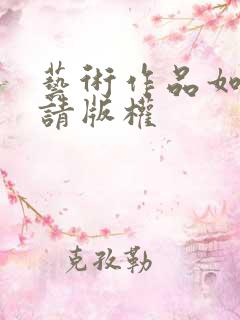 藝術作品如
請版權
克孜勒